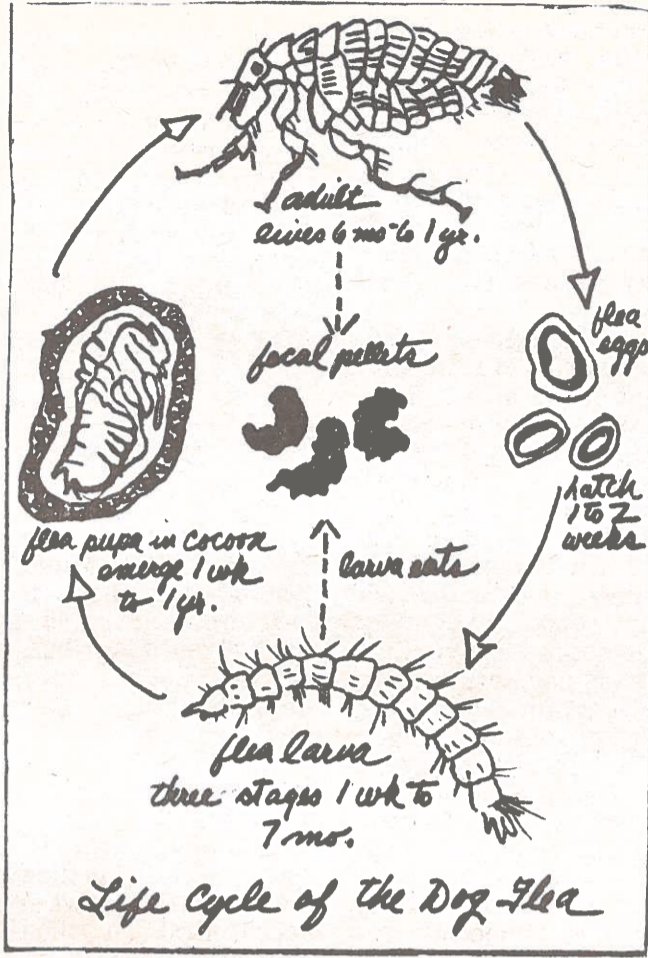 adult
lives 6 mo to 1 yr.
fecal pellets
flea
eggs
hatch
1 to 2
weeks
flea pupa in cocoon
emerge 1 wk
to 1 yr.
larva eats
flea larva
three stages 1 wk to
7 mo.
Life Cycle of the Dog Flea